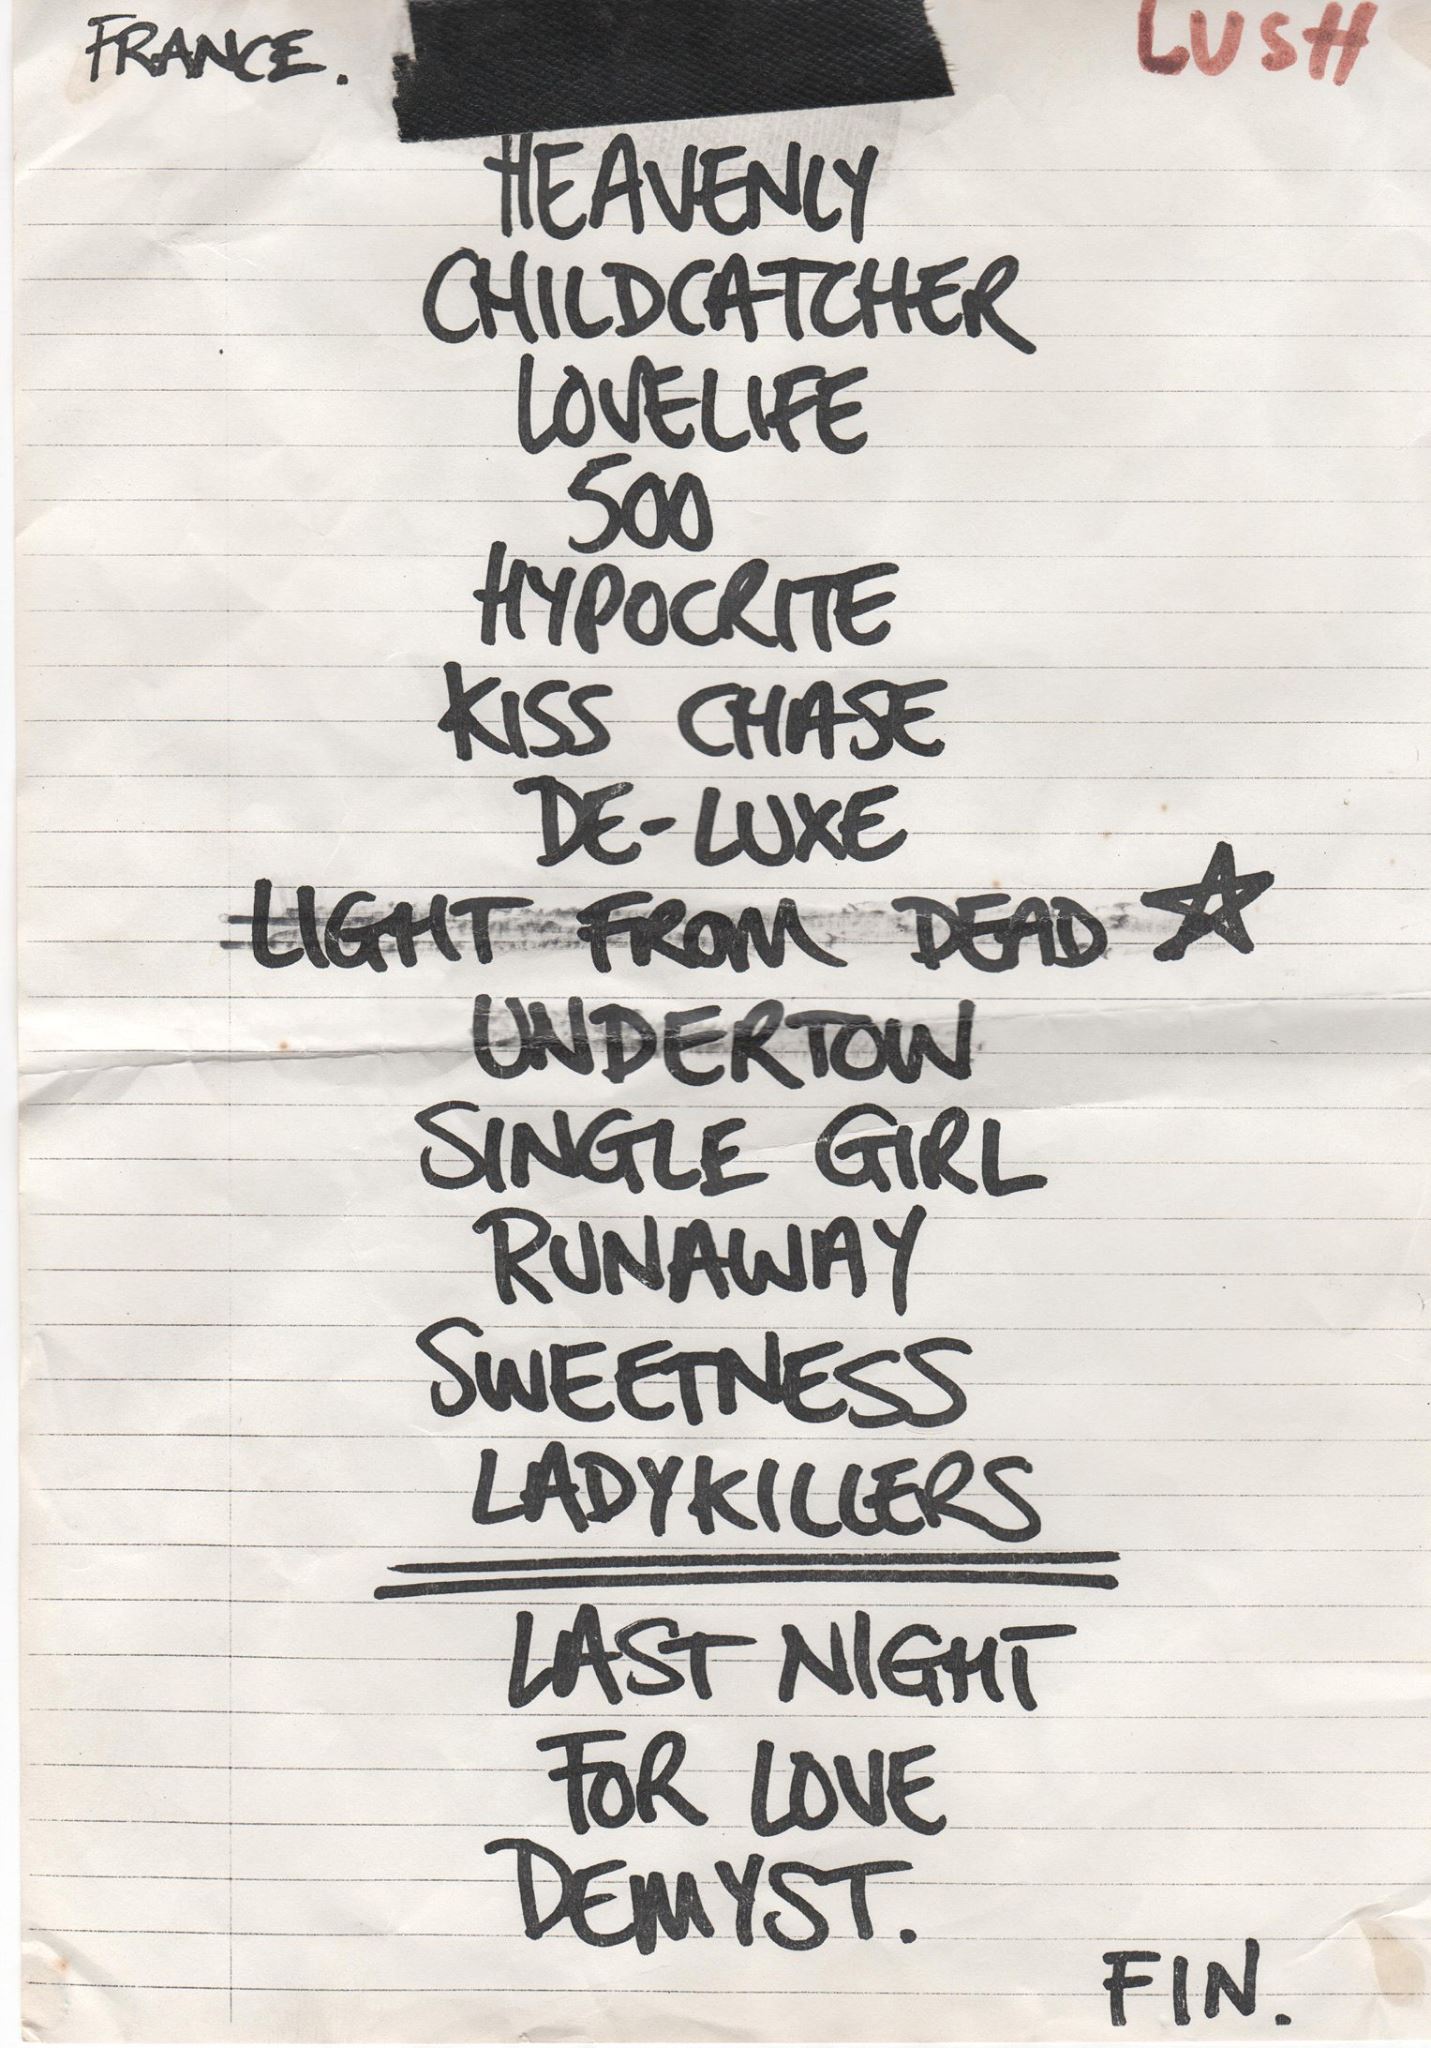 FRANCE.
LUSH
HEAVENLY
CHILDCATCHER
LOVELIFE
500
HYPOCRITE
KISS CHASE
DE-LUXE
LIGHT FROM DEAD ☆
UNDERTOW
SINGLE GIRL
RUNAWAY
SWEETNESS
LADYKILLERS
LAST NIGHT
FOR LOVE
DEMYST.
FIN.